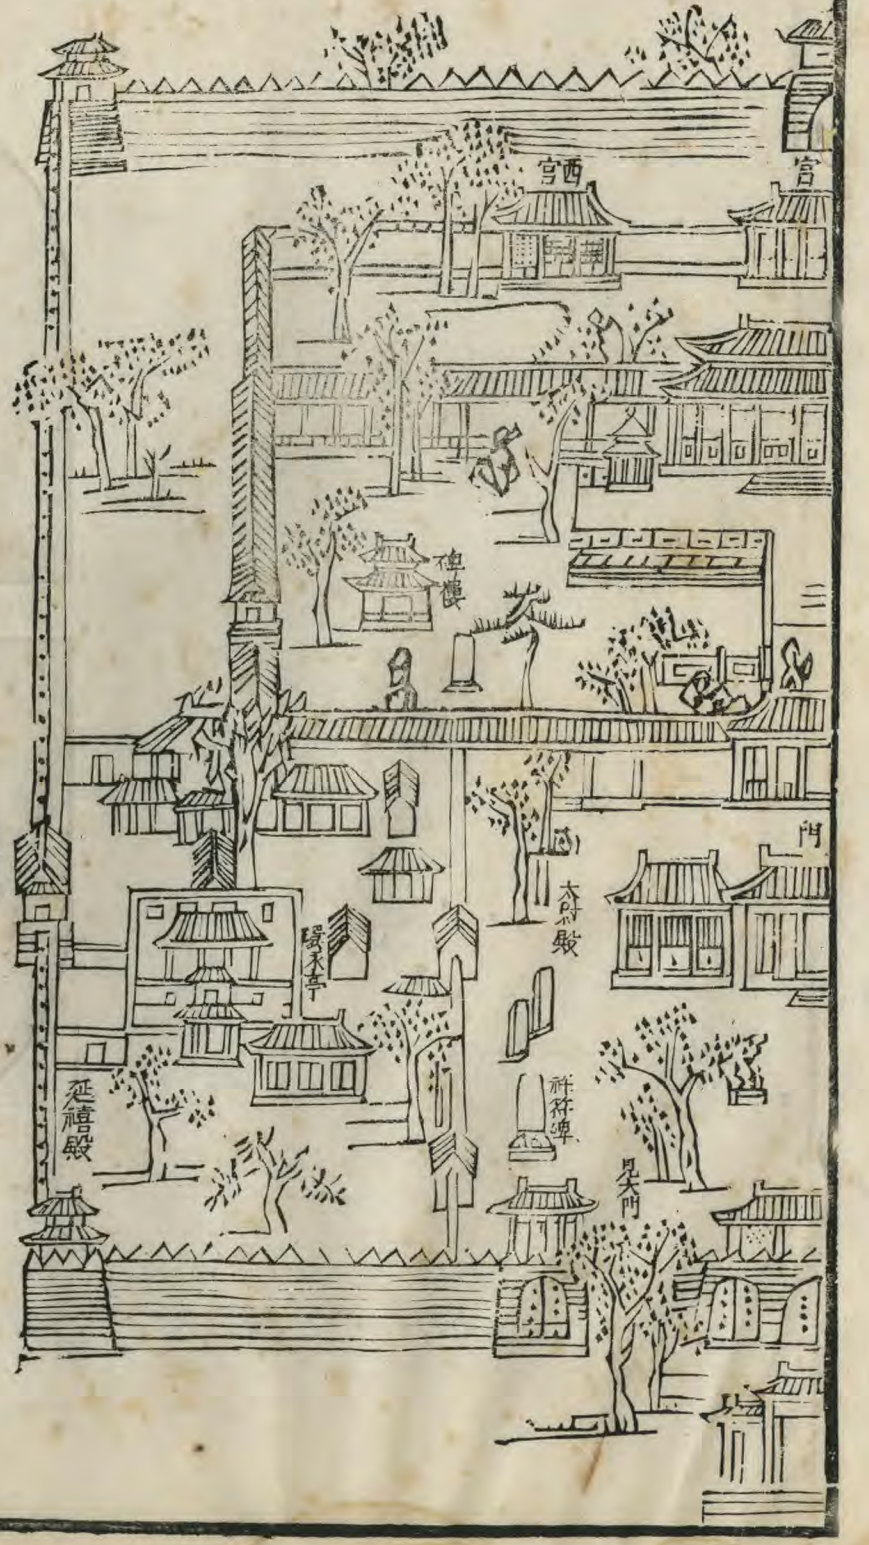 西宮
宮
碑樓
門
太尉殿
環永亭
祥符碑
延禧殿
見大門